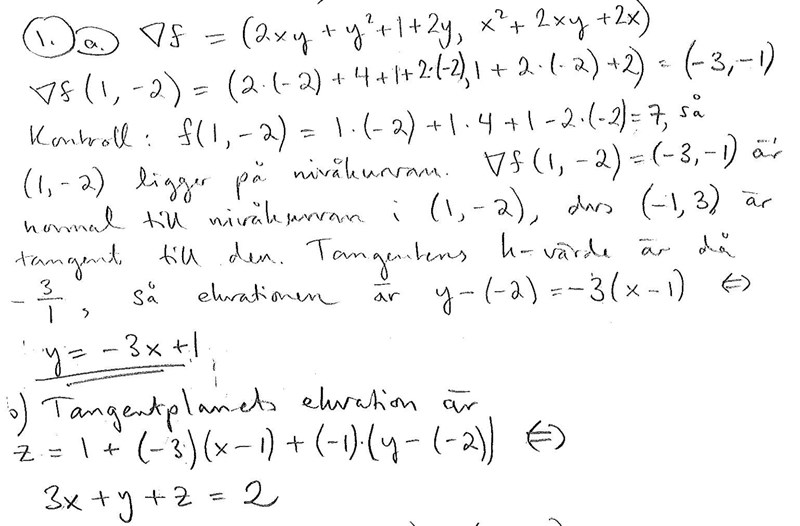 1. a. ∇f = (2xy + y² + 1 + 2y, x² + 2xy + 2x)
∇f(1, -2) = (2·(-2) + 4 + 1 + 2·(-2), 1 + 2·(-2) + 2) = (-3, -1)
Kontroll: f(1, -2) = 1·(-2) + 1·4 + 1 - 2·(-2) = 7, så
(1, -2) ligger på nivåkurvan. ∇f(1, -2) = (-3, -1) är
normal till nivåkurvan i (1, -2), dvs (-1, 3) är
tangent till den. Tangentens k-värde är då
- 3/1, så ekvationen är y - (-2) = -3(x - 1) ⇔
y = -3x + 1
b) Tangentplanets ekvation är
z = 1 + (-3)(x - 1) + (-1)·(y - (-2)) ⇔
3x + y + z = 2